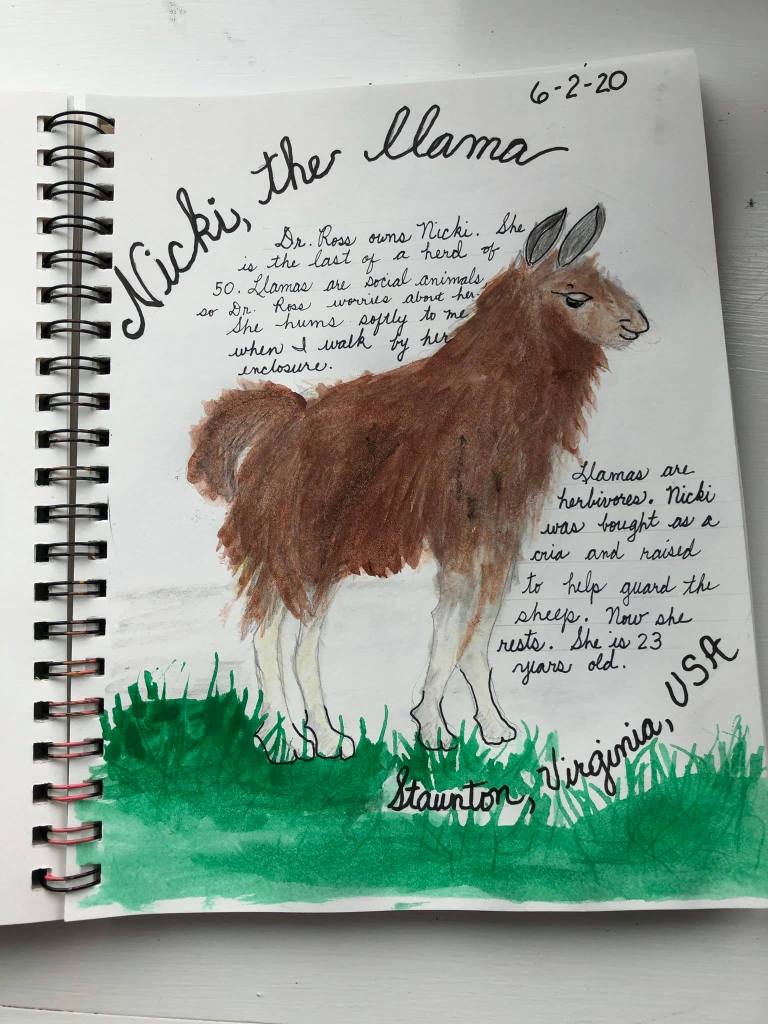 6-2-20
Nicki, the llama
Dr. Ross owns Nicki. She
is the last of a herd of
50. Llamas are social animals
so Dr. Ross worries about her.
She hums softly to me
when I walk by her
enclosure.
Llamas are
herbivores. Nicki
was bought as a
cria and raised
to help guard the
sheep. Now she
rests. She is 23
years old.
Staunton, Virginia, USA